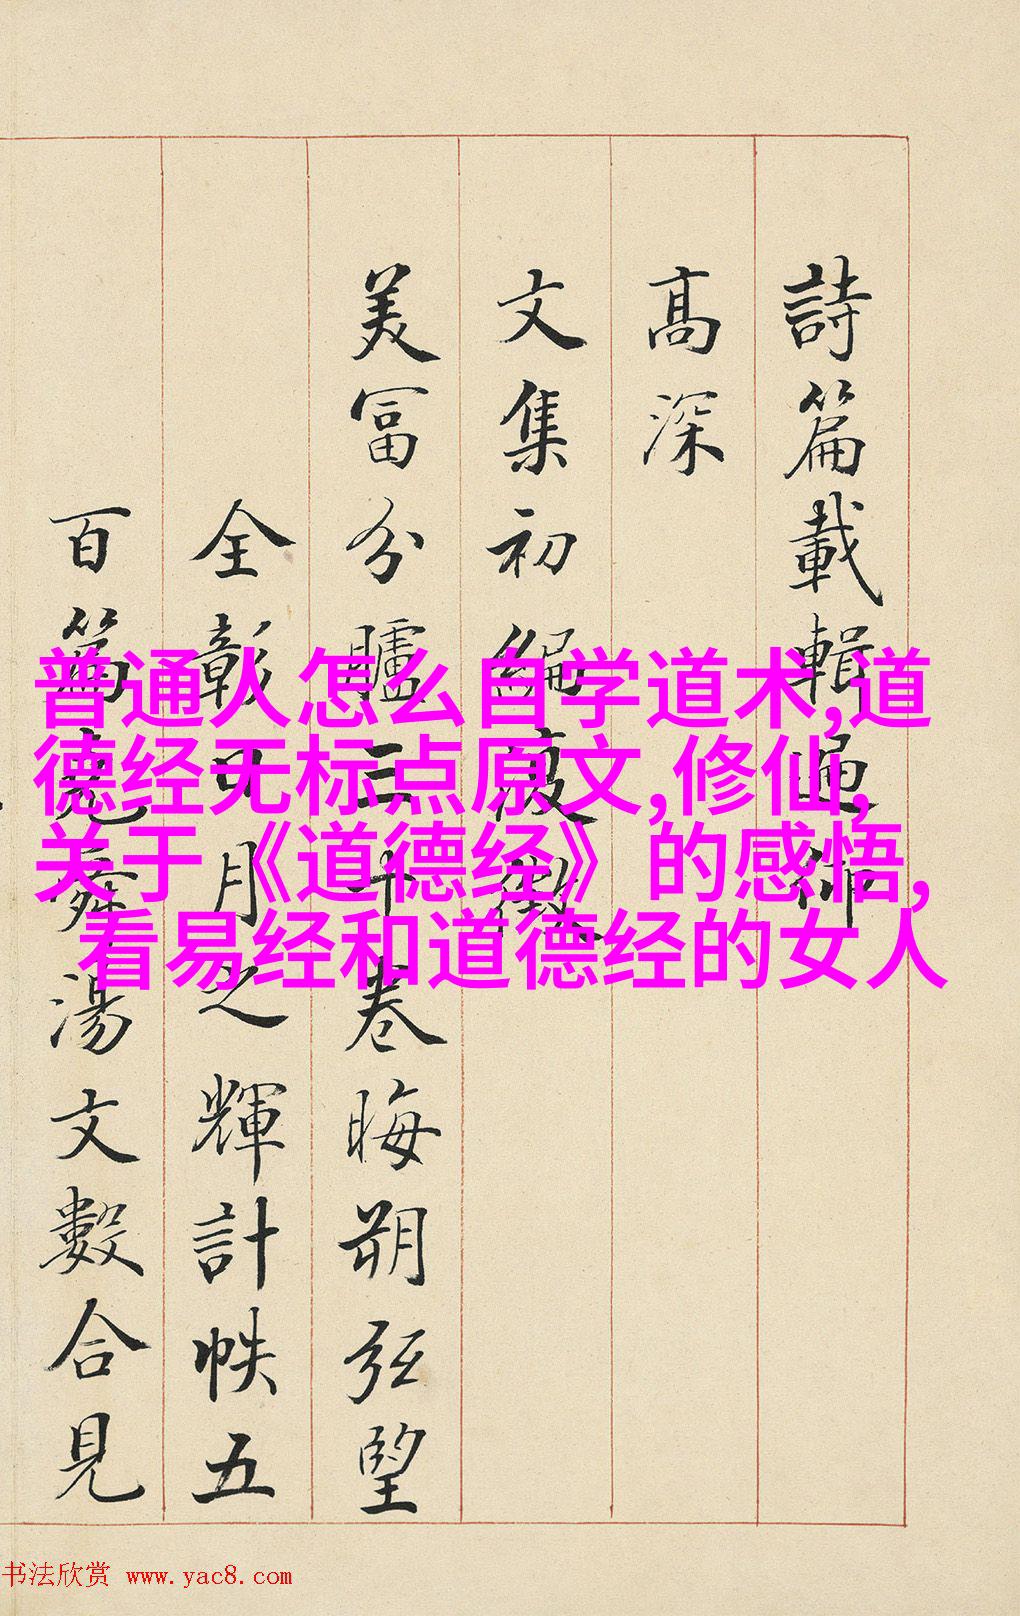 詩篇載輯通仰
高深
文集初編復徵
美富分臚三十卷晦朔弦望
全彰日月之輝計帙五
百篇堯舜湯文數合見
普通人怎么自学道术,道
德经无标点原文,修仙,
关于《道德经》的感悟,
看易经和道德经的女人
书法欣赏 www.yac8.com